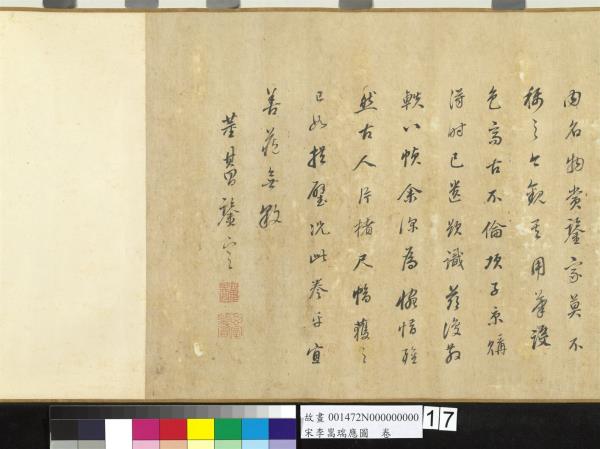 內名物賞鑒家莫不
稱之今觀其用筆設
色高古不倫項子京購
得時已遺題識茲復散
軼八幀余深為惋惜雖
然古人片楮尺幅獲之
已如拱璧況此卷乎宜
善藏無斁
董其昌鑒定
故畫 001472N000000000
宋李嵩瑞應圖 卷
17